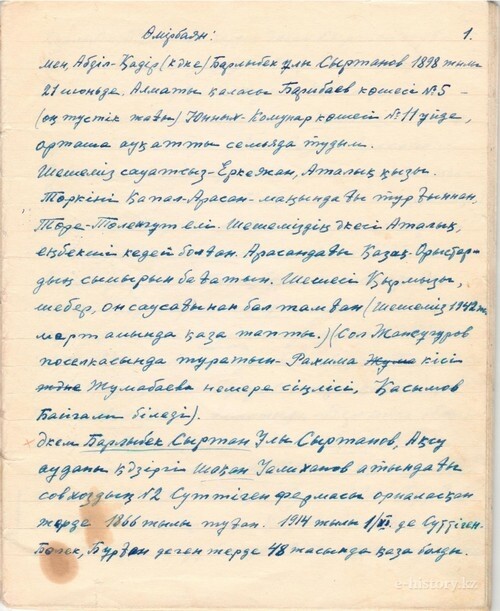 Өмірбаян: 1.
мен, Абдiл-Қадiр (Кәке) Барлыбек ұлы Сыртанов 1898 жылы
21 июньде. Алматы қаласы Барибаев көшесі №5 -
(оң түстік жағы) Юнных-Комунар көшесі №11 үйде,
орташа ауқатты семьяда тудым.
Шешеміз сауатсыз-Еркежан, Аталық қызы.
Төркіні Қапал-Арасан-маңындағы тұрғыннан,
Төре-Төленгут елі. Шешеміздің әкесі Аталық,
еңбекші кедей болған. Арасандағы Қазақ-Орыстар-
дың сиырын бағатын. Шешесі Қырмызы,
шебер, он саусағынан бал тамған (шешеміз 1942 ж
март айында қаза тапты.) (Сол Жансүгуров
поселкасында тұратын-Рахима кісі
Жумабаева немере сіңлісі, Қасымов
Байғали біледі).
Әкем Барлыбек Сыртан Ұлы Сыртанов, Ақсу
ауданы қәзіргі Шақан Уалиханов атындағы
совхоздың №2 Сүттіген фермасы орналасқан
жерде 1866 жылы туған. 1914 жылы 1/XI де Сүттіген-
Бөлек, Бұрған деген жерде 48 жасында қаза болды.
e-history.kz